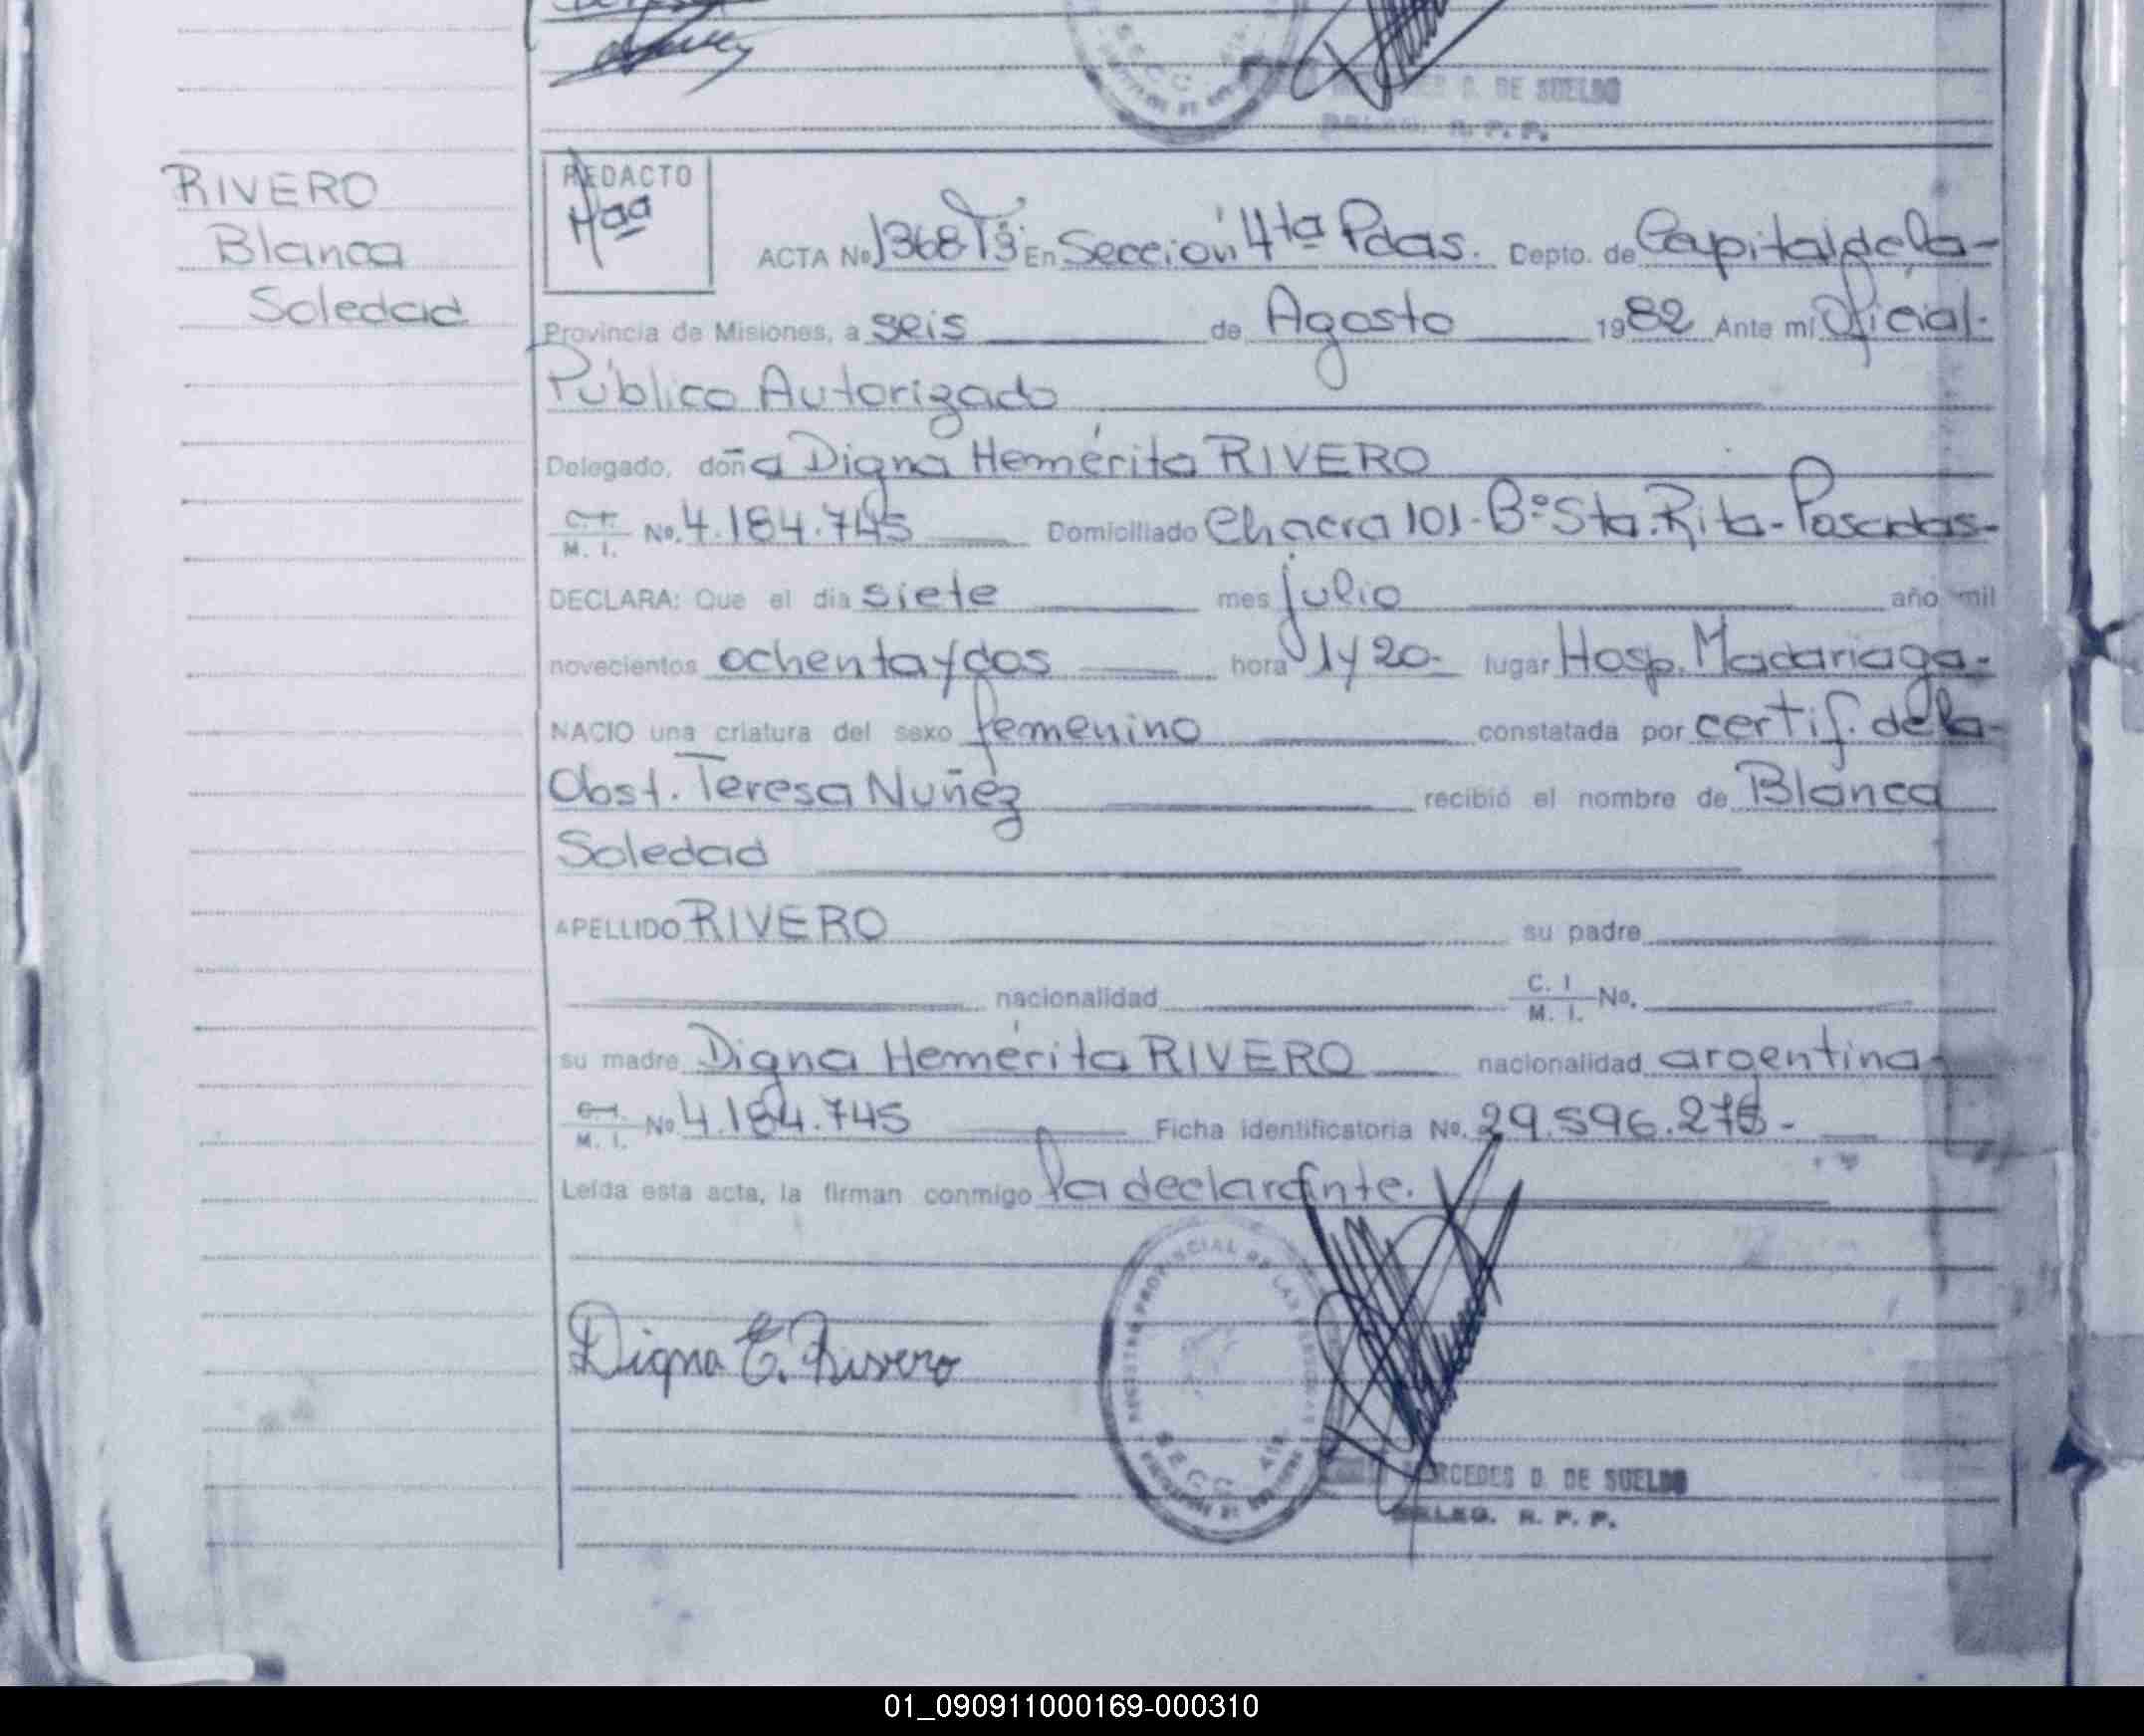 DE SUELDO
R. P. P.
RIVERO
Blanca
Soledad
REDACTO
ACTA No 1368 Tº3 En Sección 4ta Pdas. Depto. de Capital de la-
Provincia de Misiones, a seis de Agosto 1982 Ante mí Oficial.
Público Autorizado
Delegado, doña Digna Hemérita RIVERO
C.I. M. I. No. 4.184.745 Domiciliado Chacra 101-Bº Sta. Rita-Posadas-
DECLARA: Que el día siete mes julio año mil
novecientos ochenta y dos hora 1y20- lugar Hosp. Madariaga-
NACIO una criatura del sexo femenino constatada por certif. de la-
Obst. Teresa Nuñez recibió el nombre de Blanca
Soledad
APELLIDO RIVERO su padre
nacionalidad C. I M. I. No.
su madre Digna Hemérita RIVERO nacionalidad argentina-
C.I. M. I. No 4.184.745 Ficha identificatoria No. 29.596.276-
Leída esta acta, la firman conmigo la declarante.
Digna E. Rivero
REGISTRO PROVINCIAL DE LAS PERSONAS
SECC. 4ta
MERCEDES D. DE SUELDO
DELEG. R. P. P.
01_090911000169-000310